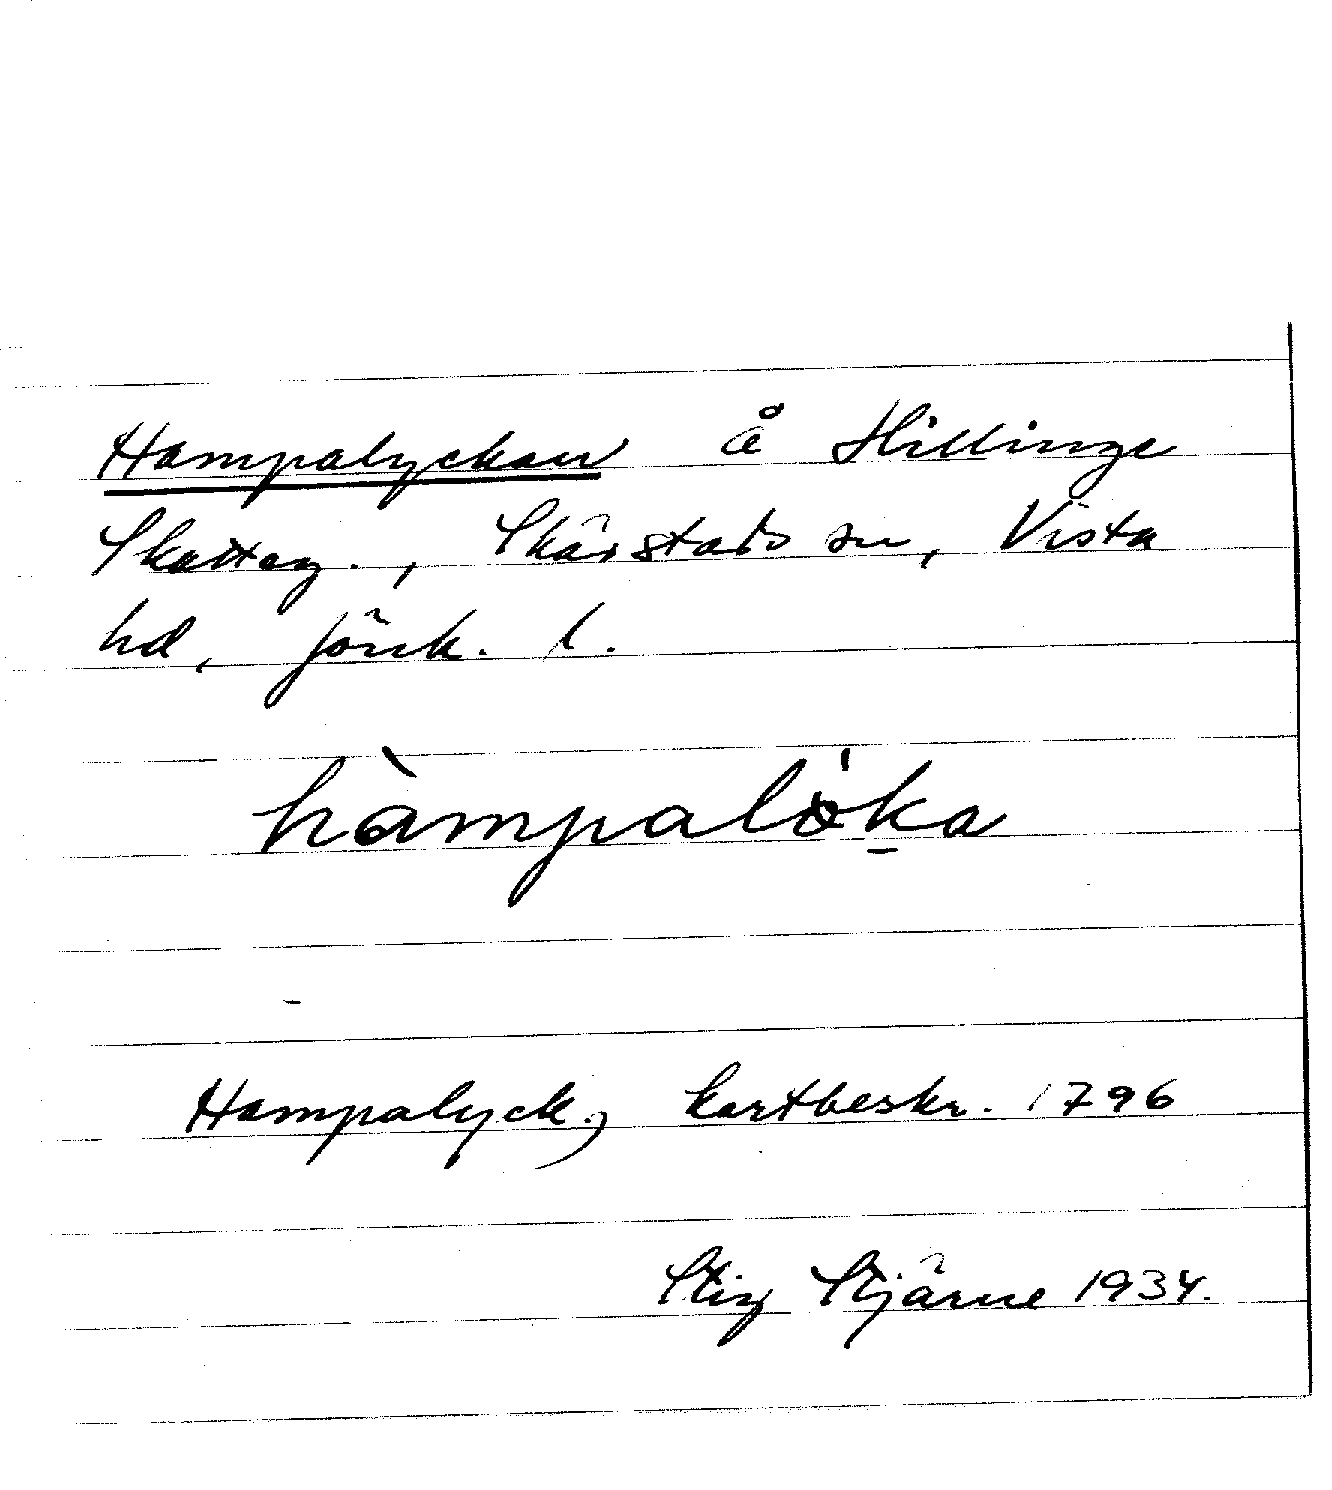 Hampalyckan å Hillinge
Skatteg., Skärstads sn, Vista
hd, Jönk. l.
hàmpalöka
Hampalyck., kartbeskr. 1796
Stig Stjärne 1934.